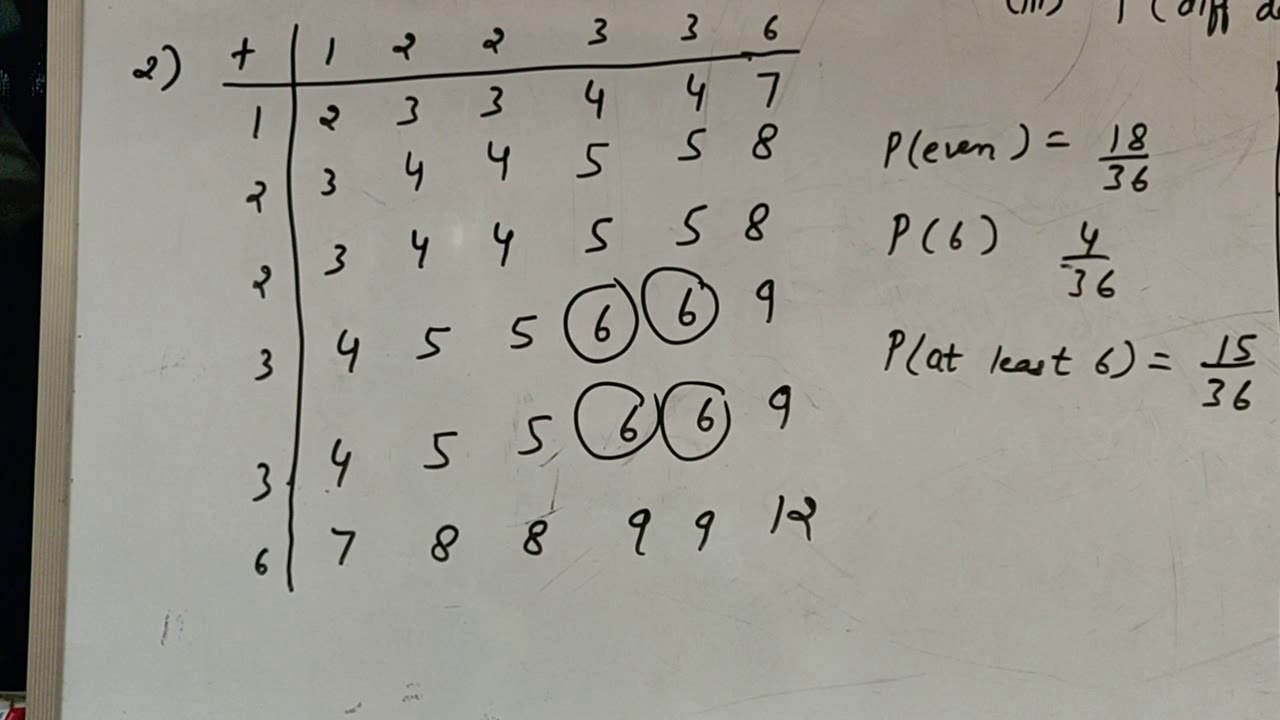 (iii) P(diff
2) + 1 2 2 3 3 6
1 2 3 3 4 4 7
2 3 4 4 5 5 8
2 3 4 4 5 5 8
3 4 5 5 6 6 9
3 4 5 5 6 6 9
6 7 8 8 9 9 12
P(even) = 18/36
P(6) 4/36
P(at least 6) = 15/36